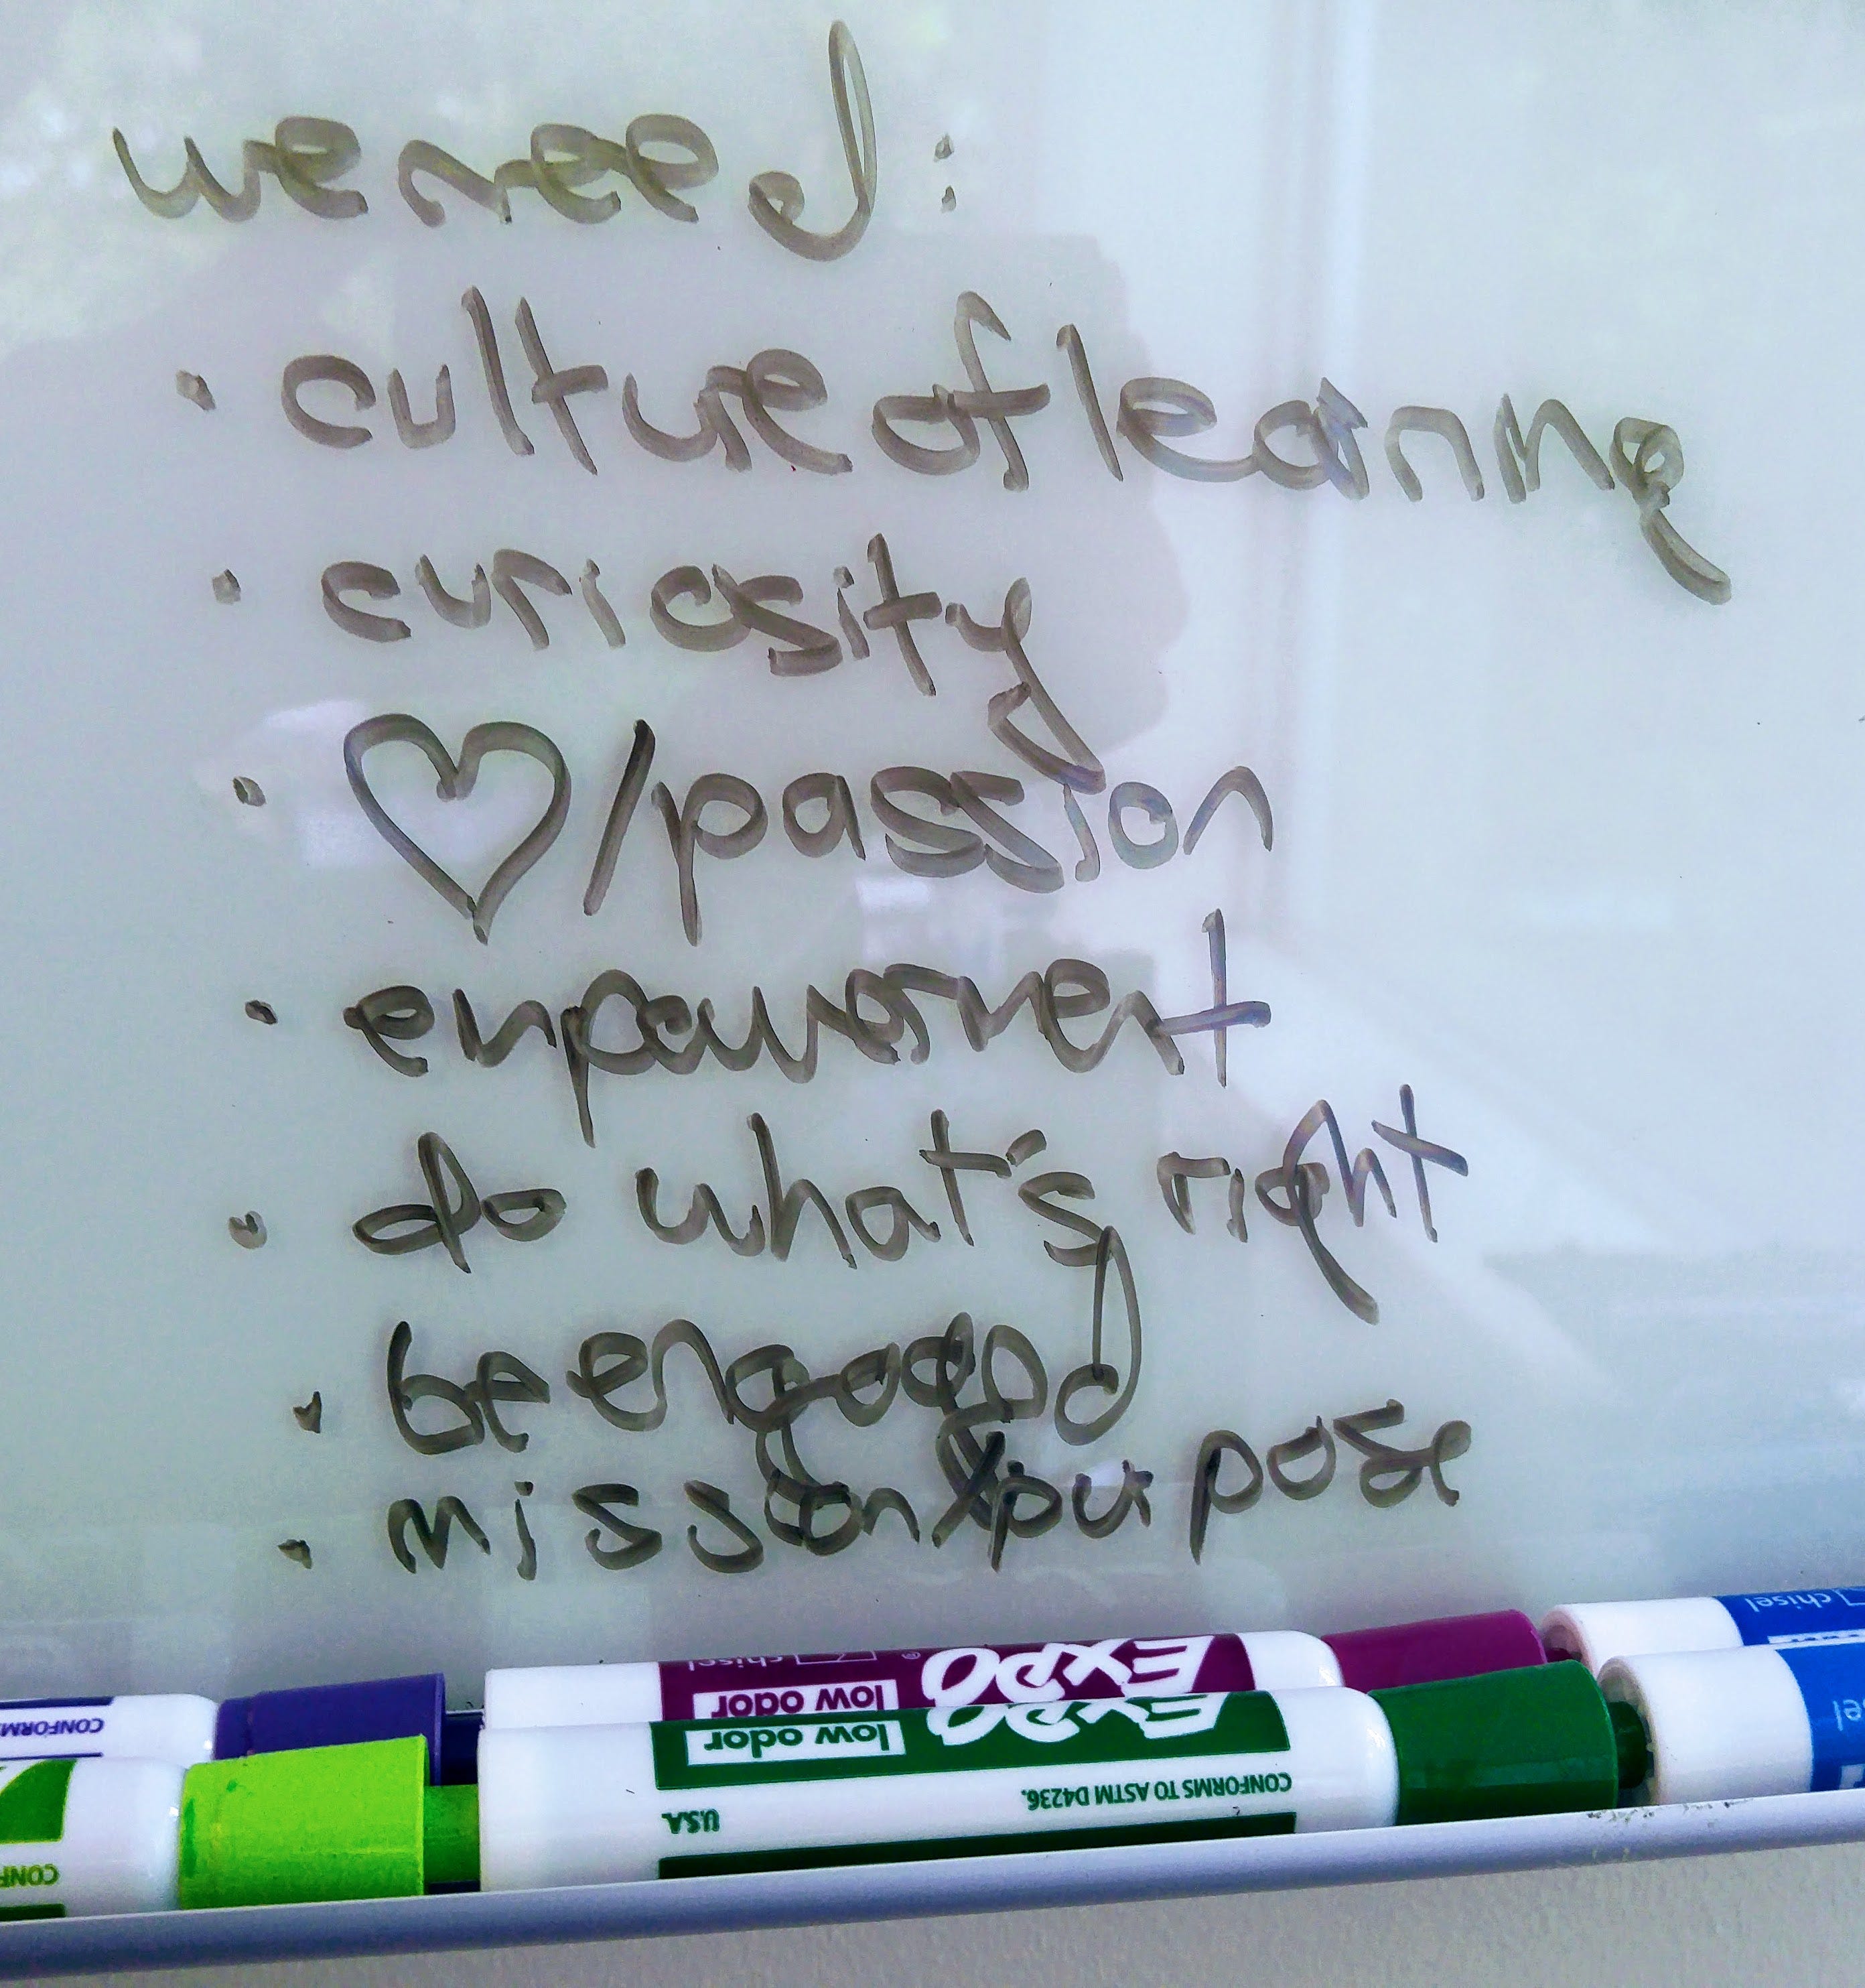 we need:
· culture of learning
· curiosity
· ♡/passion
· empowerment
· do what's right
· be engaged
· mission/purpose
CONFORMS
chisel
low odor
EXPO
chisel
CONF
low odor
EXPO
CONFORMS TO ASTM D4236.
U.S.A.